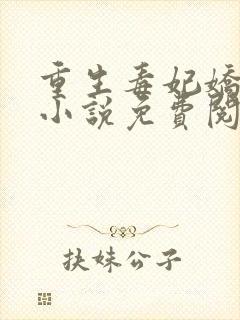 重生毒妃嬌
小說免費閱
扶妹公子